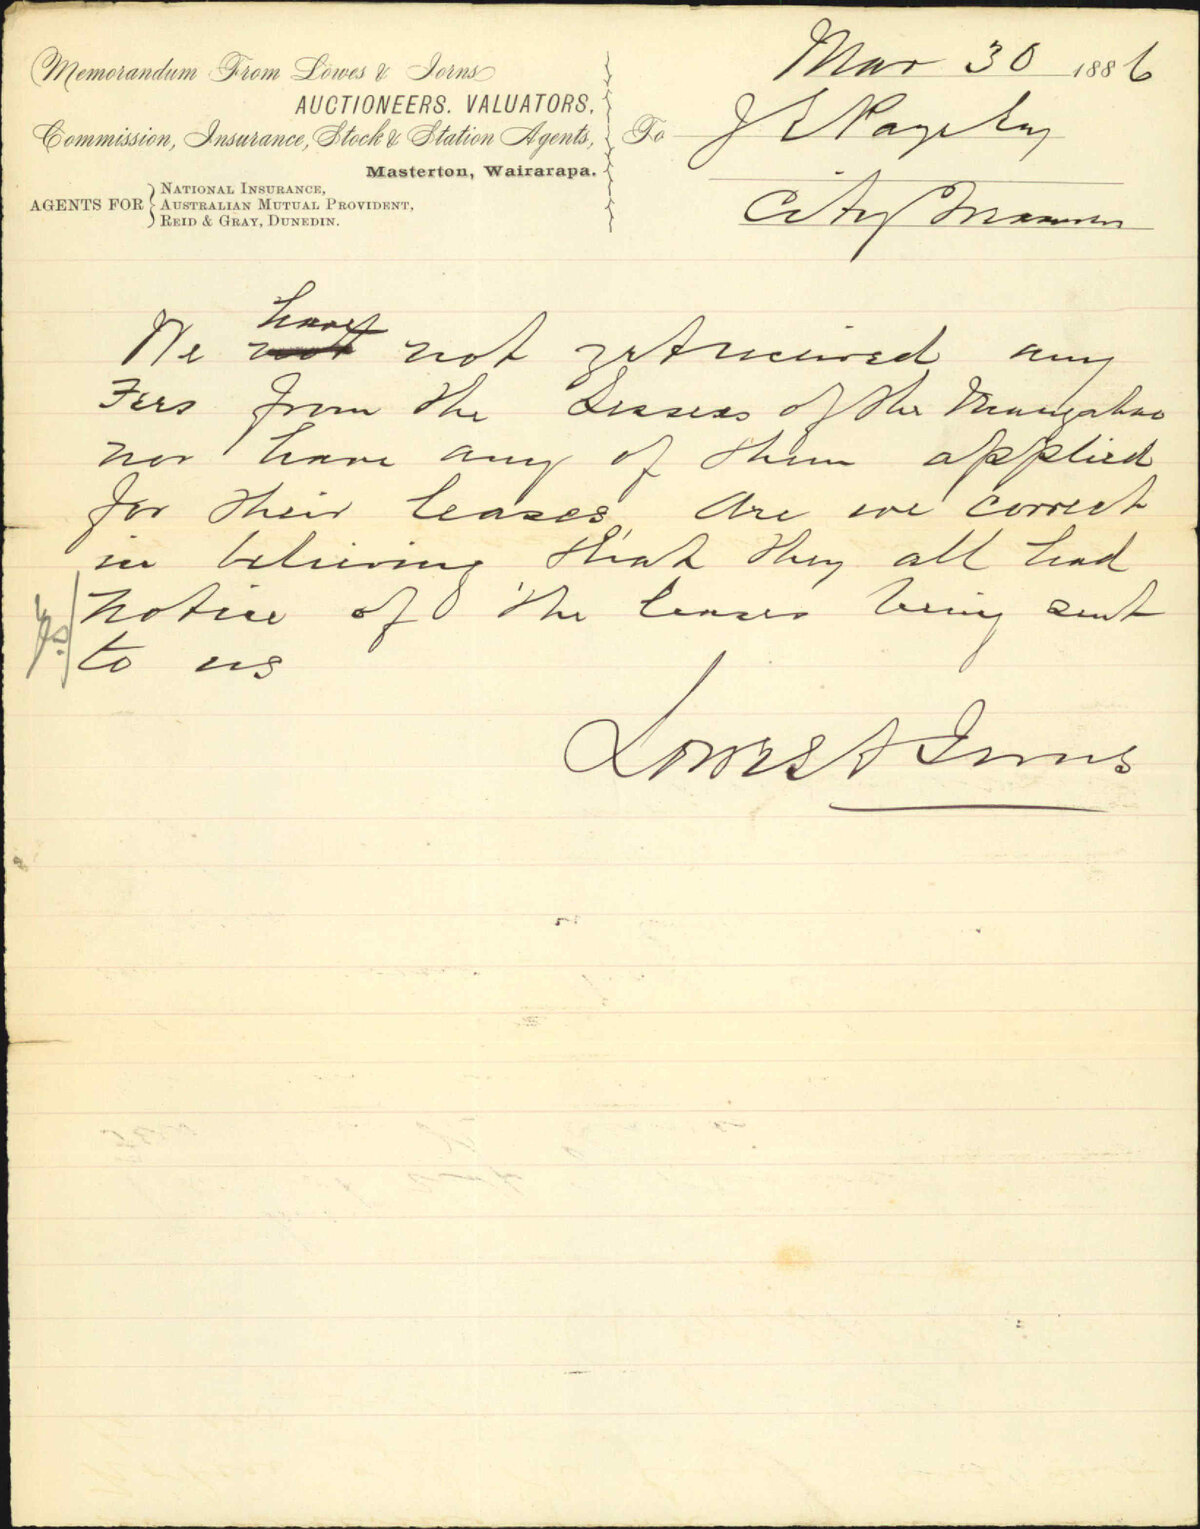 Memorandum From Lowes & Iorns
AUCTIONEERS. VALUATORS,
Commission, Insurance, Stock & Station Agents,
Masterton, Wairarapa.
AGENTS FOR
NATIONAL INSURANCE,
AUSTRALIAN MUTUAL PROVIDENT,
REID & GRAY, DUNEDIN.
Mar 30 1886
To J E Page Esq
City
We have not yet received any
Fees from the Lessees of the Mangahao
nor have any of them applied
for their leases, are we correct
in believing that they all had
notice of the leases being sent
to us
Yes.
Lowes & Iorns